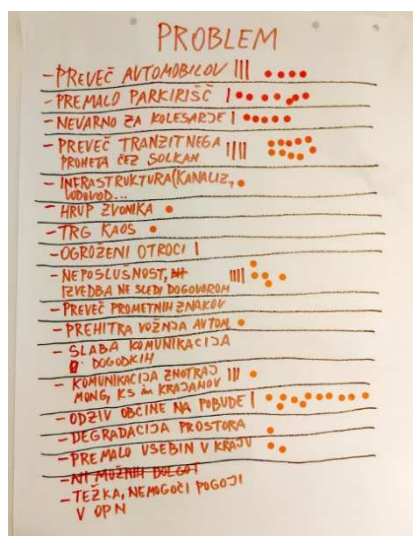 PROBLEM
- PREVEČ AVTOMOBILOV |||
- PREMALO PARKIRIŠČ |
- NEVARNO ZA KOLESARJE |
- PREVEČ TRANZITNEGA ||||
PROMETA ČEZ SOLKAN
- INFRASTRUKTURA (KANALIZ.,
VODOVOD...
- HRUP ZVONIKA
- TRG KAOS
- OGROŽENI OTROCI |
- NEPOSLUŠNOST, ||||
IZVEDBA NE SLEDI DOGOVOROM
- PREVEČ PROMETNIH ZNAKOV
- PREHITRA VOŽNJA AVTOM.
- SLABA KOMUNIKACIJA
O DOGODKIH
- KOMUNIKACIJA ZNOTRAJ |||
MONG, KS in KRAJANOV
- ODZIV OBČINE NA POBUDE |
- DEGRADACIJA PROSTORA
- PREMALO VSEBIN V KRAJU
- NI MOŽNIH DOLGOT
- TEŽKA, NEMOGOČI POGOJI
V OPN